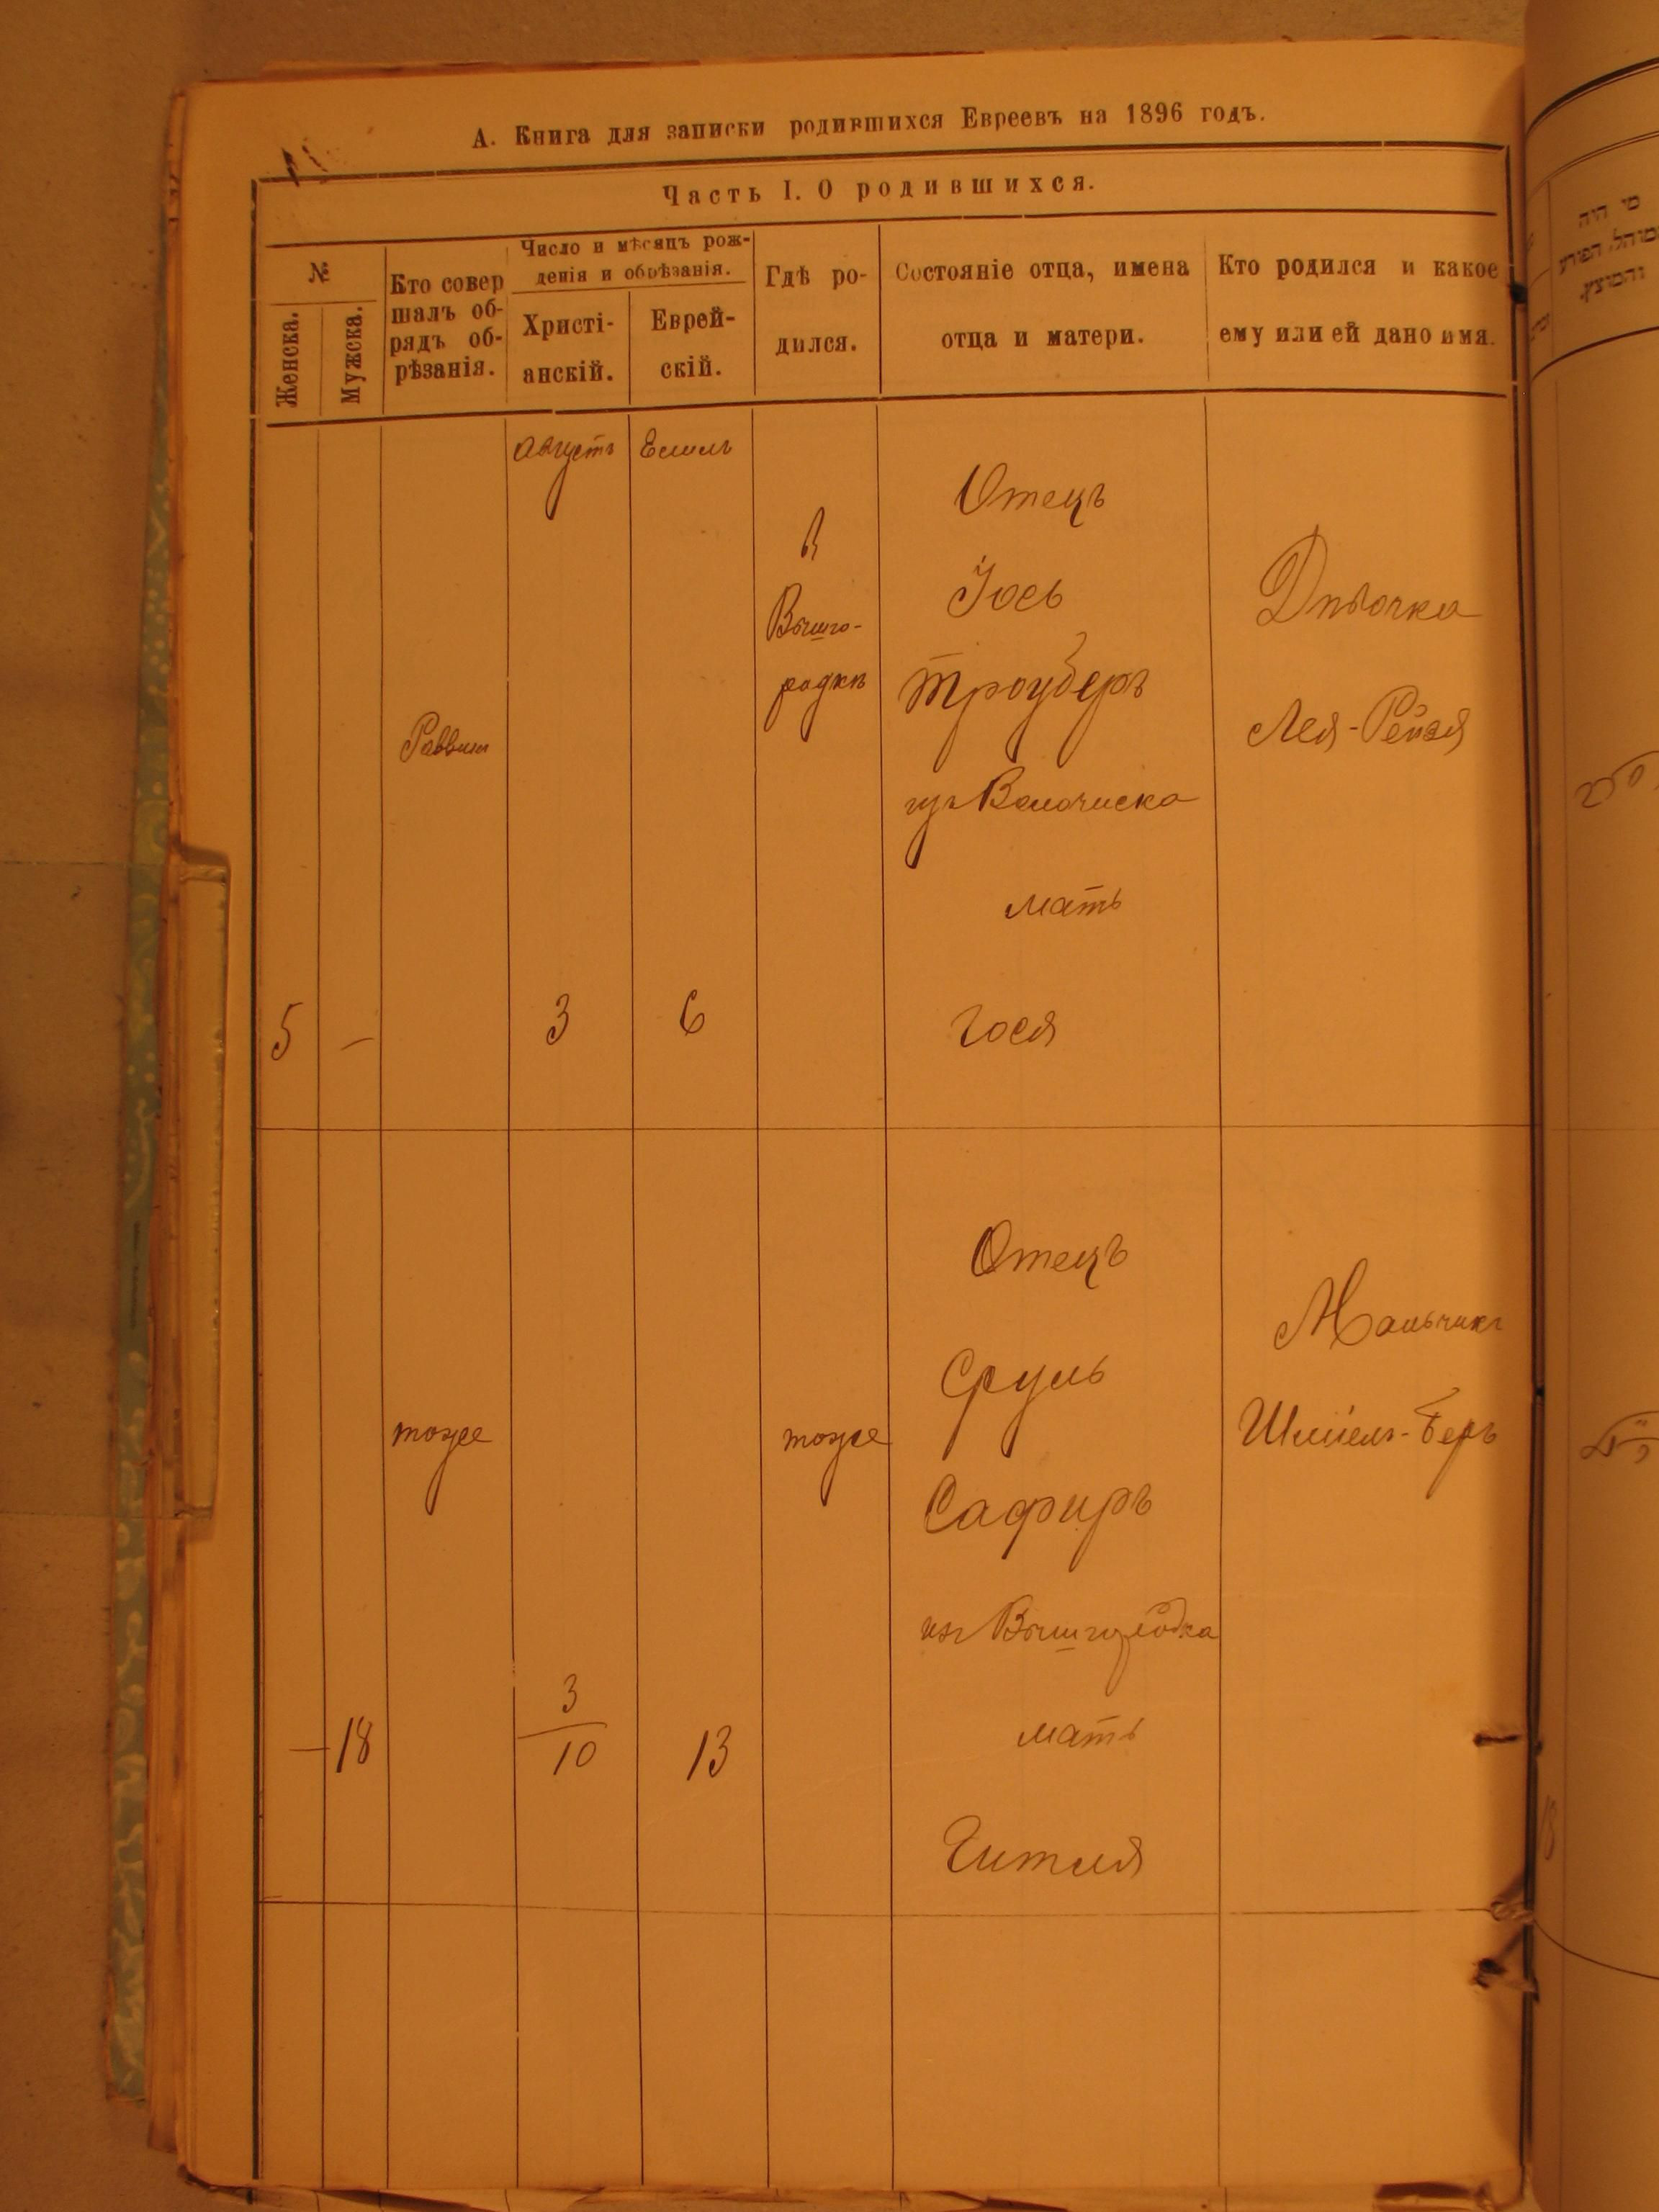 А. Книга для записки родившихся Евреевъ на 1896 годъ.
Часть I. О родившихся.
№
Женска.
Мужска.
Кто совер
шалъ об-
рядъ об-
рѣзанія.
Число и мѣсяцъ рож-
денія и обрѣзанія.
Христі-
анскій.
Еврей-
скій.
Гдѣ ро-
дился.
Состояніе отца, имена
отца и матери.
Кто родился и какое
ему или ей дано имя.
מי היה
המוהל, הפורע
והמוצץ.
5
-
Раввин
Августъ
3
Елулъ
6
В
Вышго-
родкѣ
Отецъ
Іось
Троуберъ
изъ Волочиска
мать
Гося
Дѣвочка
Лея-Рейзя
-
18
тоже
3
10
13
тоже
Отецъ
Сруль
Сафиръ
изъ Вышгородка
мать
Гитля
Мальчикъ
Шміелъ-Беръ